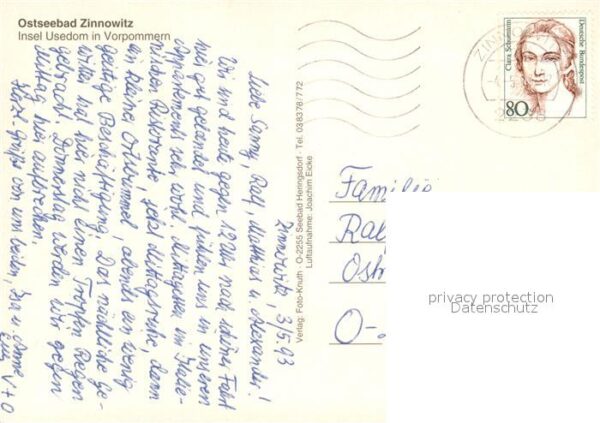 Ostseebad Zinnowitz
Insel Usedom in Vorpommern
Zinnowitz, 3/5.93
Liebe Sanny, Ralf, Matthias u. Alexander!
Wir sind heute gegen 12 Uhr nach schöner Fahrt
hier gut gelandet und fühlen uns in unserem
Appartement sehr wohl. Mittagessen im Italie-
nischen Restorante, jetzt Mittagsruhe, dann
ein kleiner Ortsbummel, abends ein wenig
geistige Beschäftigung. Das nächtliche Ge-
witter hat hier nicht einen Tropfen Regen
gebracht. Donnerstag werden wir gegen
Mittag hier aufbrechen.
Herzl. Grüße von uns beiden, u. Anne
V + O
Verlag: Foto-Knuth · O-2255 Seebad Heringsdorf · Tel. 038378/772
Luftaufnahme: Joachim Eicke
ZINNOWITZ
2238
Clara Schumann
Deutsche Bundespost
80
Familie
Ral
Ost
O-
privacy protection
Datenschutz